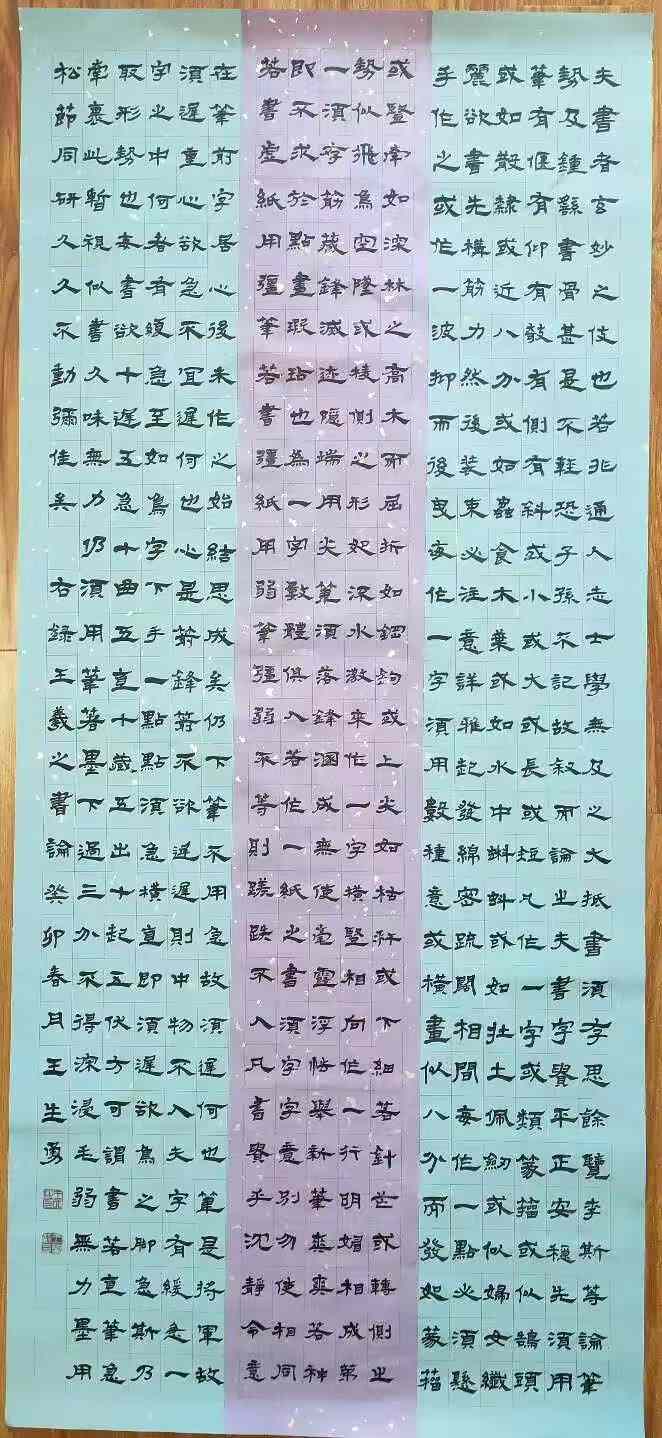 夫書者玄妙之伎也若非通人志士學無及之大抵書須存思餘覽李斯等論筆
勢及鍾繇書骨甚是不輕恐子孫不記故敘而論之夫書字貴平正安穩先須用
筆有偃有仰有欹有側有斜或小或大或長或短凡作一字或類篆籀或似鵠頭
或如散隸或近八分或如蟲食木葉或如水中蝌蚪或如壯士佩劍或似婦女纖
麗欲書先構筋力然後裝束必注意詳雅起發綿密疏闊相間每作一點必須懸
手作之或作一波抑而後曳每作一字須用數種意或橫畫似八分而發如篆籀
或豎牽如深林之喬木而屈折如鋼鉤或上尖如枯稈或下細若針芒或轉側之
勢似飛鳥空墜或棱側之形如流水激來作一字橫豎相向作一行明媚相成第
一須字筋藏鋒滅迹隱端用尖筆須落鋒混成無使毫露浮怯舉新筆爽爽若神
即不求於點畫瑕玷也為一字數體俱入若作一紙之書須字字意別勿使相同
若書虛紙用彊筆若書彊紙用弱筆彊弱不等則蹉跌不入凡書貴乎沈靜令意
在筆前字居心後未作之始結思成矣仍下筆不用急故須遲何也筆是將軍故
須遲重心欲急不宜遲何也心是箭鋒箭不欲遲遲則中物不入夫字有緩急一
字之中何者有緩急至如鳥字下手一點點須急橫直即須遲欲鳥之腳急斯乃
取形勢也每書欲十遲五急十曲五直十藏五出十起五伏方可謂書若直筆急
牽裹此暫視似書久味無力仍須用筆著墨下過三分不得深浸毛弱無力墨用
松節同研久久不動彌佳矣 右錄王羲之書論癸卯春月王生勇